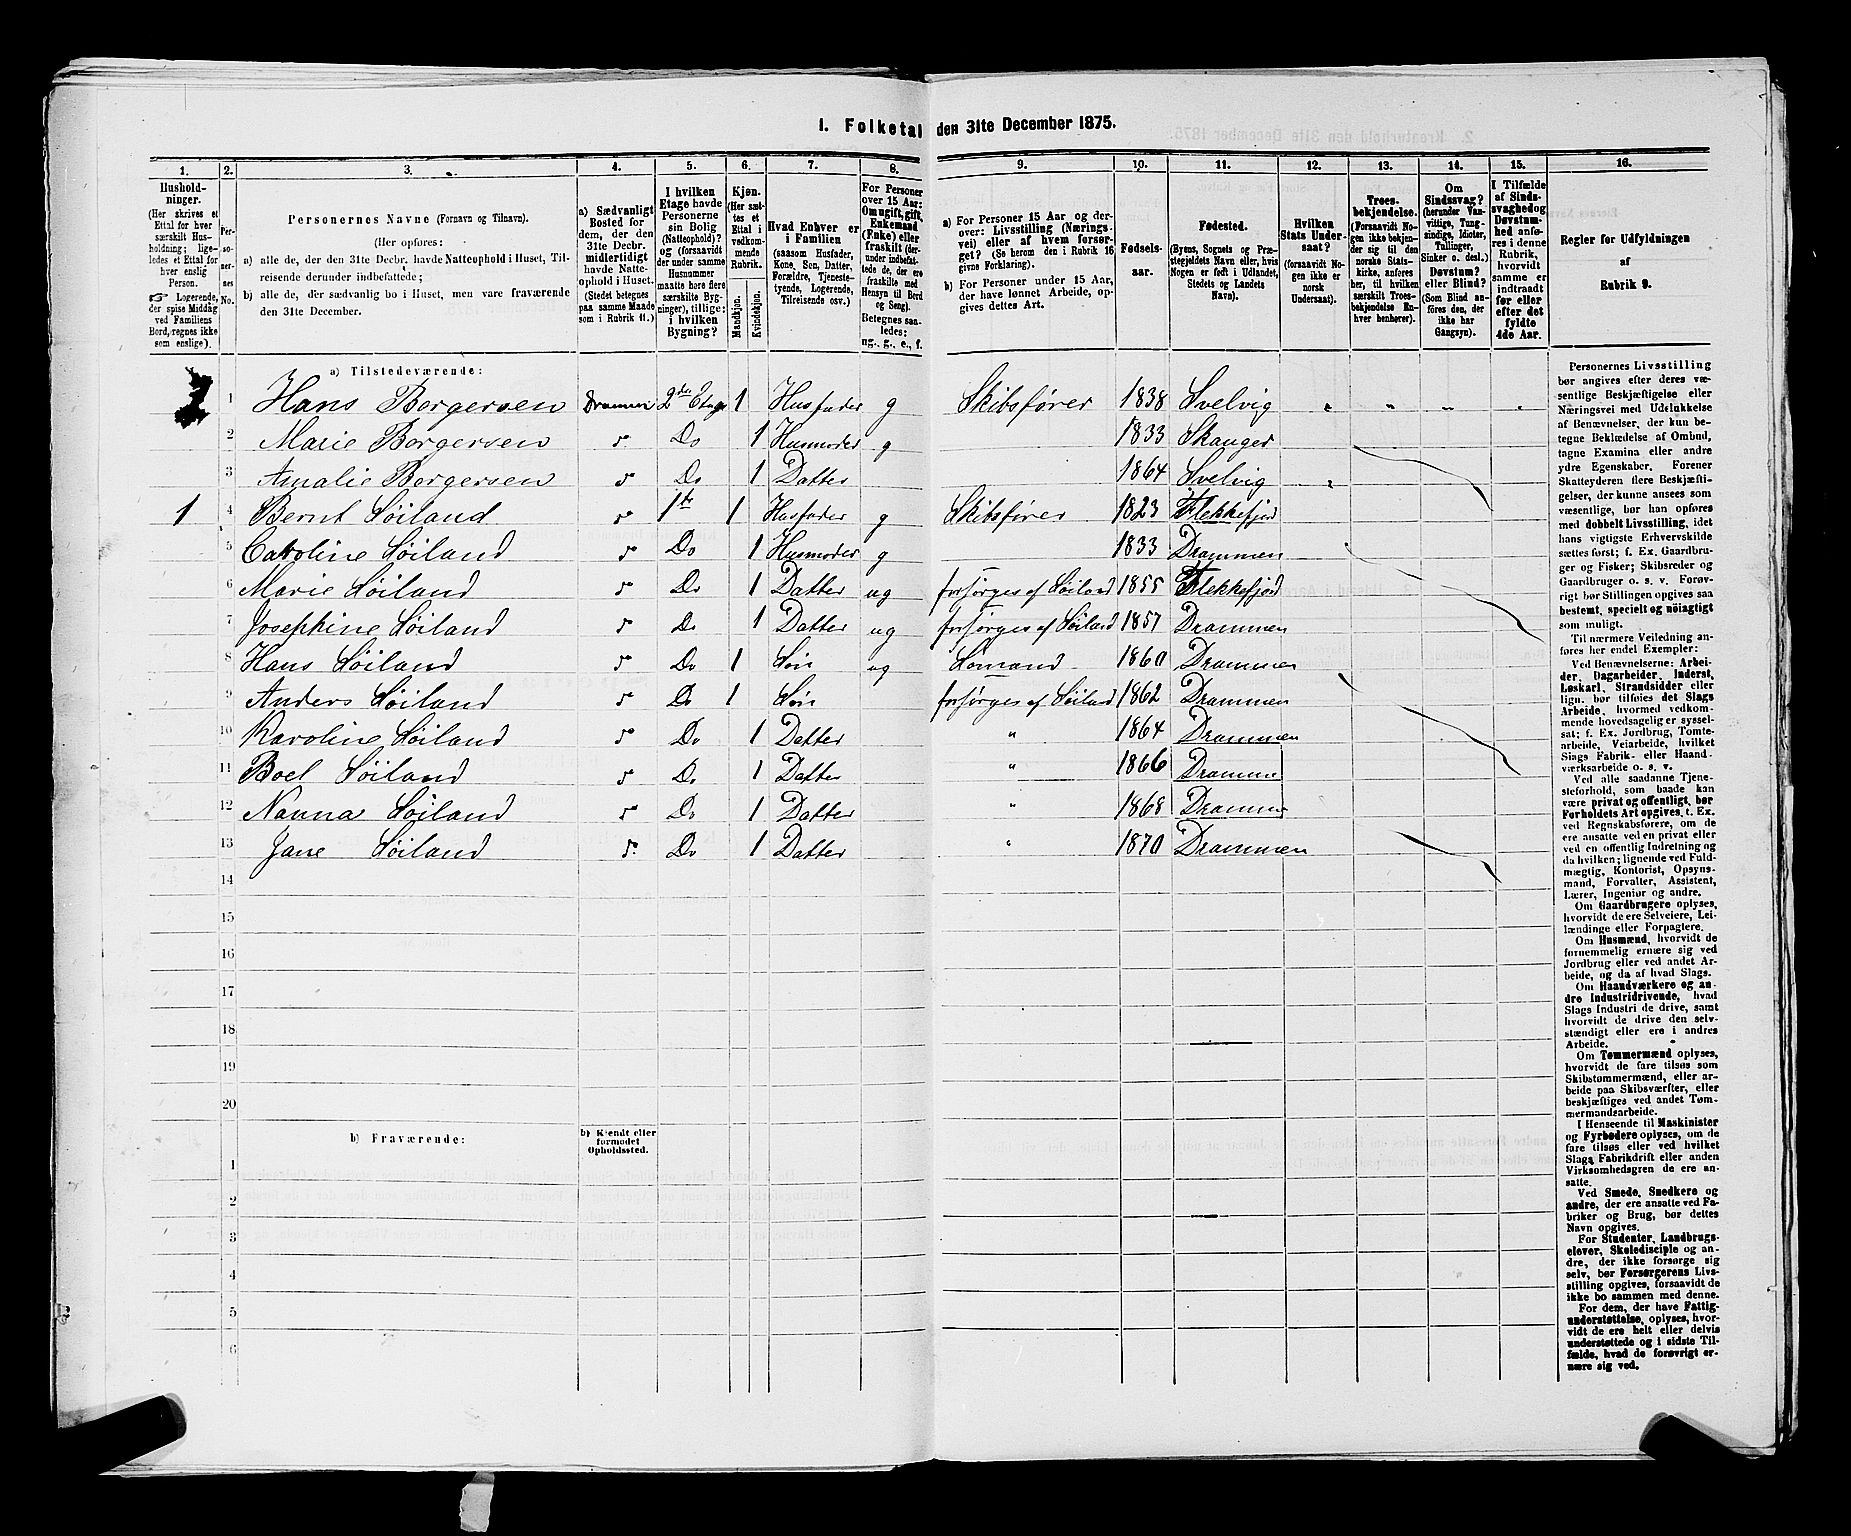 I. Folketal den 31te December 1875.
1. 2. 3. 4. 5. 6. 7. 8. 9. 10. 11. 12. 13. 14. 15. 16.
Husholdninger.
(Her skrives et
Ettal for hver
særskilt Husholdning;
ligeledes et Ettal for
hver enslig
Person.
☞ Logerende,
der spise Middag
ved Familiens
Bord, regnes ikke
som enslige).
Personernes No.
Personernes Navne (Fornavn og Tilnavn).
(Her opføres:
a) alle de, der den 31te Decbr. havde Natteophold i Huset, Tilreisende derunder indbefattede;
b) alle de, der sædvanlig bo i Huset, men vare fraværende
den 31te December.
a) Sædvanligt
Bosted for
dem, der den
31te Decbr.
midlertidigt
havde Natteophold
i Huset.
(Stedet betegnes
paa samme Maade
som i Rubrik 11.)
I hvilken
Etage havde
Personerne
sin Bolig
(Natteophold)?
og (forsaavidt
der under samme
Husnummer
maatte høre flere
særskilte Bygninger),
tillige:
i hvilken
Bygning?
Kjøn.
(Her sættes
et
Ettal i
vedkommende
Rubrik.
Mandkjøn.
Kvindekjøn.
Hvad Enhver er
i Familien
(saasom Husfader,
Kone, Søn, Datter,
Forældre, Tjenestetyende,
Logerende,
Tilreisende osv.)
For Personer
over 15 Aar:
Om ugift, gift,
Enkemand
(Enke) eller
fraskilt (derunder
indbefattede
de, der ere
fraskilte med
Hensyn til Bord
og Seng).
Betegnes saaledes:
ug., g., e., f.
a) For Personer 15 Aar og derover:
Livsstilling (Næringsvei)
eller af hvem forsørget?
(Se herom den i Rubrik 16
givne Forklaring).
b) For Personer under 15 Aar,
der have lønnet Arbeide, opgives
dettes Art.
Fødselsaar.
Fødested.
(Byens, Sognets og Præstegjeldets
Navn eller, hvis
Nogen er født i Udlandet,
Stedets og Landets
Navn).
Hvilken
Stats Undersaat?
(forsaavidt Nogen
ikke er
norsk
Undersaat).
Troesbekjendelse.
(Forsaavidt Nogen
ikke bekjender
sig til den
norske Statskirke,
anføres
her, til hvilken
særskilt Troesbekjendelse
Enhver
henhører).
Om
Sindssvag?
(herunder Vanvittige,
Tungsindige,
Idioter,
Tullinger,
Sinker o. desl.)
Døvstum?
eller Blind?
(Som Blind anføres
den, der
ikke har
Gangsyn).
I Tilfælde
af Sindssvaghed
og
Døvstumhed
anføres
i denne
Rubrik,
hvorvidt
samme er
indtraadt
før eller
efter det
fyldte
4de Aar.
Regler for Udfyldningen
af
Rubrik 9.
a) Tilstedeværende:
1 Hans Borgersen Drammen 2den Etage 1 Husfader g Skibsfører 1838 Svelvig
2 Marie Borgersen Do 1 Husmoder g 1833 Skauger
3 Amalie Borgersen Do 1 Datter 1864 Svelvig
1 4 Bernt Søiland 1te 1 Husfader g Skibsfører 1823 Flekkefjord
5 Caroline Søiland Do 1 Husmoder g 1833 Drammen
6 Marie Søiland Do 1 Datter ug forsørges af Søiland 1855 Flekkefjord
7 Josephine Søiland Do 1 Datter ug forsørges af Søiland 1857 Drammen
8 Hans Søiland Do 1 Søn ug Sømand 1860 Drammen
9 Anders Søiland Do 1 Søn forsørges af Søiland 1862 Drammen
10 Karoline Søiland Do 1 Datter " 1864 Drammen
11 Boel Søiland Do 1 Datter " 1866 Dramme
12 Nanna Søiland Do 1 Datter " 1868 Drammen
13 Jane Søiland Do 1 Datter " 1870 Drammen
14
15
16
17
18
19
20
b) Fraværende:
b) Kjendt eller
formodet
Opholdssted.
1
2
3
4
5
6
Personernes Livsstilling
bør angives efter deres væsentlige
Beskjæftigelse eller
Næringsvei med Udelukkelse
af Benævnelser, der kun betegne
Beklædelse af Ombud,
tagne Examina eller andre
ydre Egenskaber. Forener
Skatteyderen flere Beskjæftigelser,
der kunne ansees som
væsentlige, bør han opføres
med dobbelt Livsstilling, idet
hans vigtigste Erhvervskilde
sættes først; f. Ex. Gaardbruger
og Fisker; Skibsreder og
Gaardbruger o. s. v. Forøvrigt
bør Stillingen opgives saa
bestemt, specielt og nöiagtigt
som muligt.
Til nærmere Veiledning anføres
her endel Exempler:
Ved Benævnelserne: Arbeider,
Dagarbeider, Inderst,
Løskarl, Strandsidder eller
lign. bør tilføies det Slags
Arbeide, hvormed vedkommende
hovedsagelig er sysselsat;
f. Ex. Jordbrug, Tomtearbeide,
Veiarbeide, hvilket
Slags Fabrik- eller Haandværksarbeide
o. s. v.
Ved alle saadanne Tjenesteforhold,
som baade kan
være privat og offentligt, bør
Forholdets Art opgives, t. Ex.
ved Regnskabsførere, om de
ere ansatte ved en privat eller
ved en offentlig Indretning og
da hvilken; lignende ved Fuldmægtig,
Kontorist, Opsynsmand,
Forvalter, Assistent,
Lærer, Ingeniør og andre.
Om Gaardbrugere oplyses,
hvorvidt de ere Selveiere, Leilændinge
eller Forpagtere.
Om Husmænd, hvorvidt de
fornemmelig ernære sig ved
Jordbrug eller ved andet Arbeide,
og da af hvad Slags.
Om Haandværkere og andre
Industridrivende, hvad
Slags Industri de drive, samt
hvorvidt de drive den selvstændigt
eller ere i andres
Arbeide.
Om Tømmermænd oplyses,
hvorvidt de fare tilsøs som
Skibstømmermænd, eller arbeide
paa Skibsværfter, eller
beskjæftiges ved andet Tømmermandsarbeide.
I Henseende til Maskinister
og Fyrbødere oplyses, om de
fare tilsøs eller ved hvilket
Slags Fabrikdrift eller anden
Virksomhedsgren de ere ansatte.
Ved Smede, Snedkere og
andre, der ere ansatte ved Fabriker
og Brug, bør dettes
Navn opgives.
For Studenter, Landbrugselever,
Skoledisciple og andre,
der ikke forsørge sig
selv, bør Forsørgerens Livsstilling
opgives, forsaavidt de
ikke bo sammen med denne.
For dem, der have Fattigunderstøttelse,
oplyses, hvorvidt
de ere helt eller delvis
understøttede og i sidste Tilfælde,
hvad de forøvrigt ernære
sig ved.